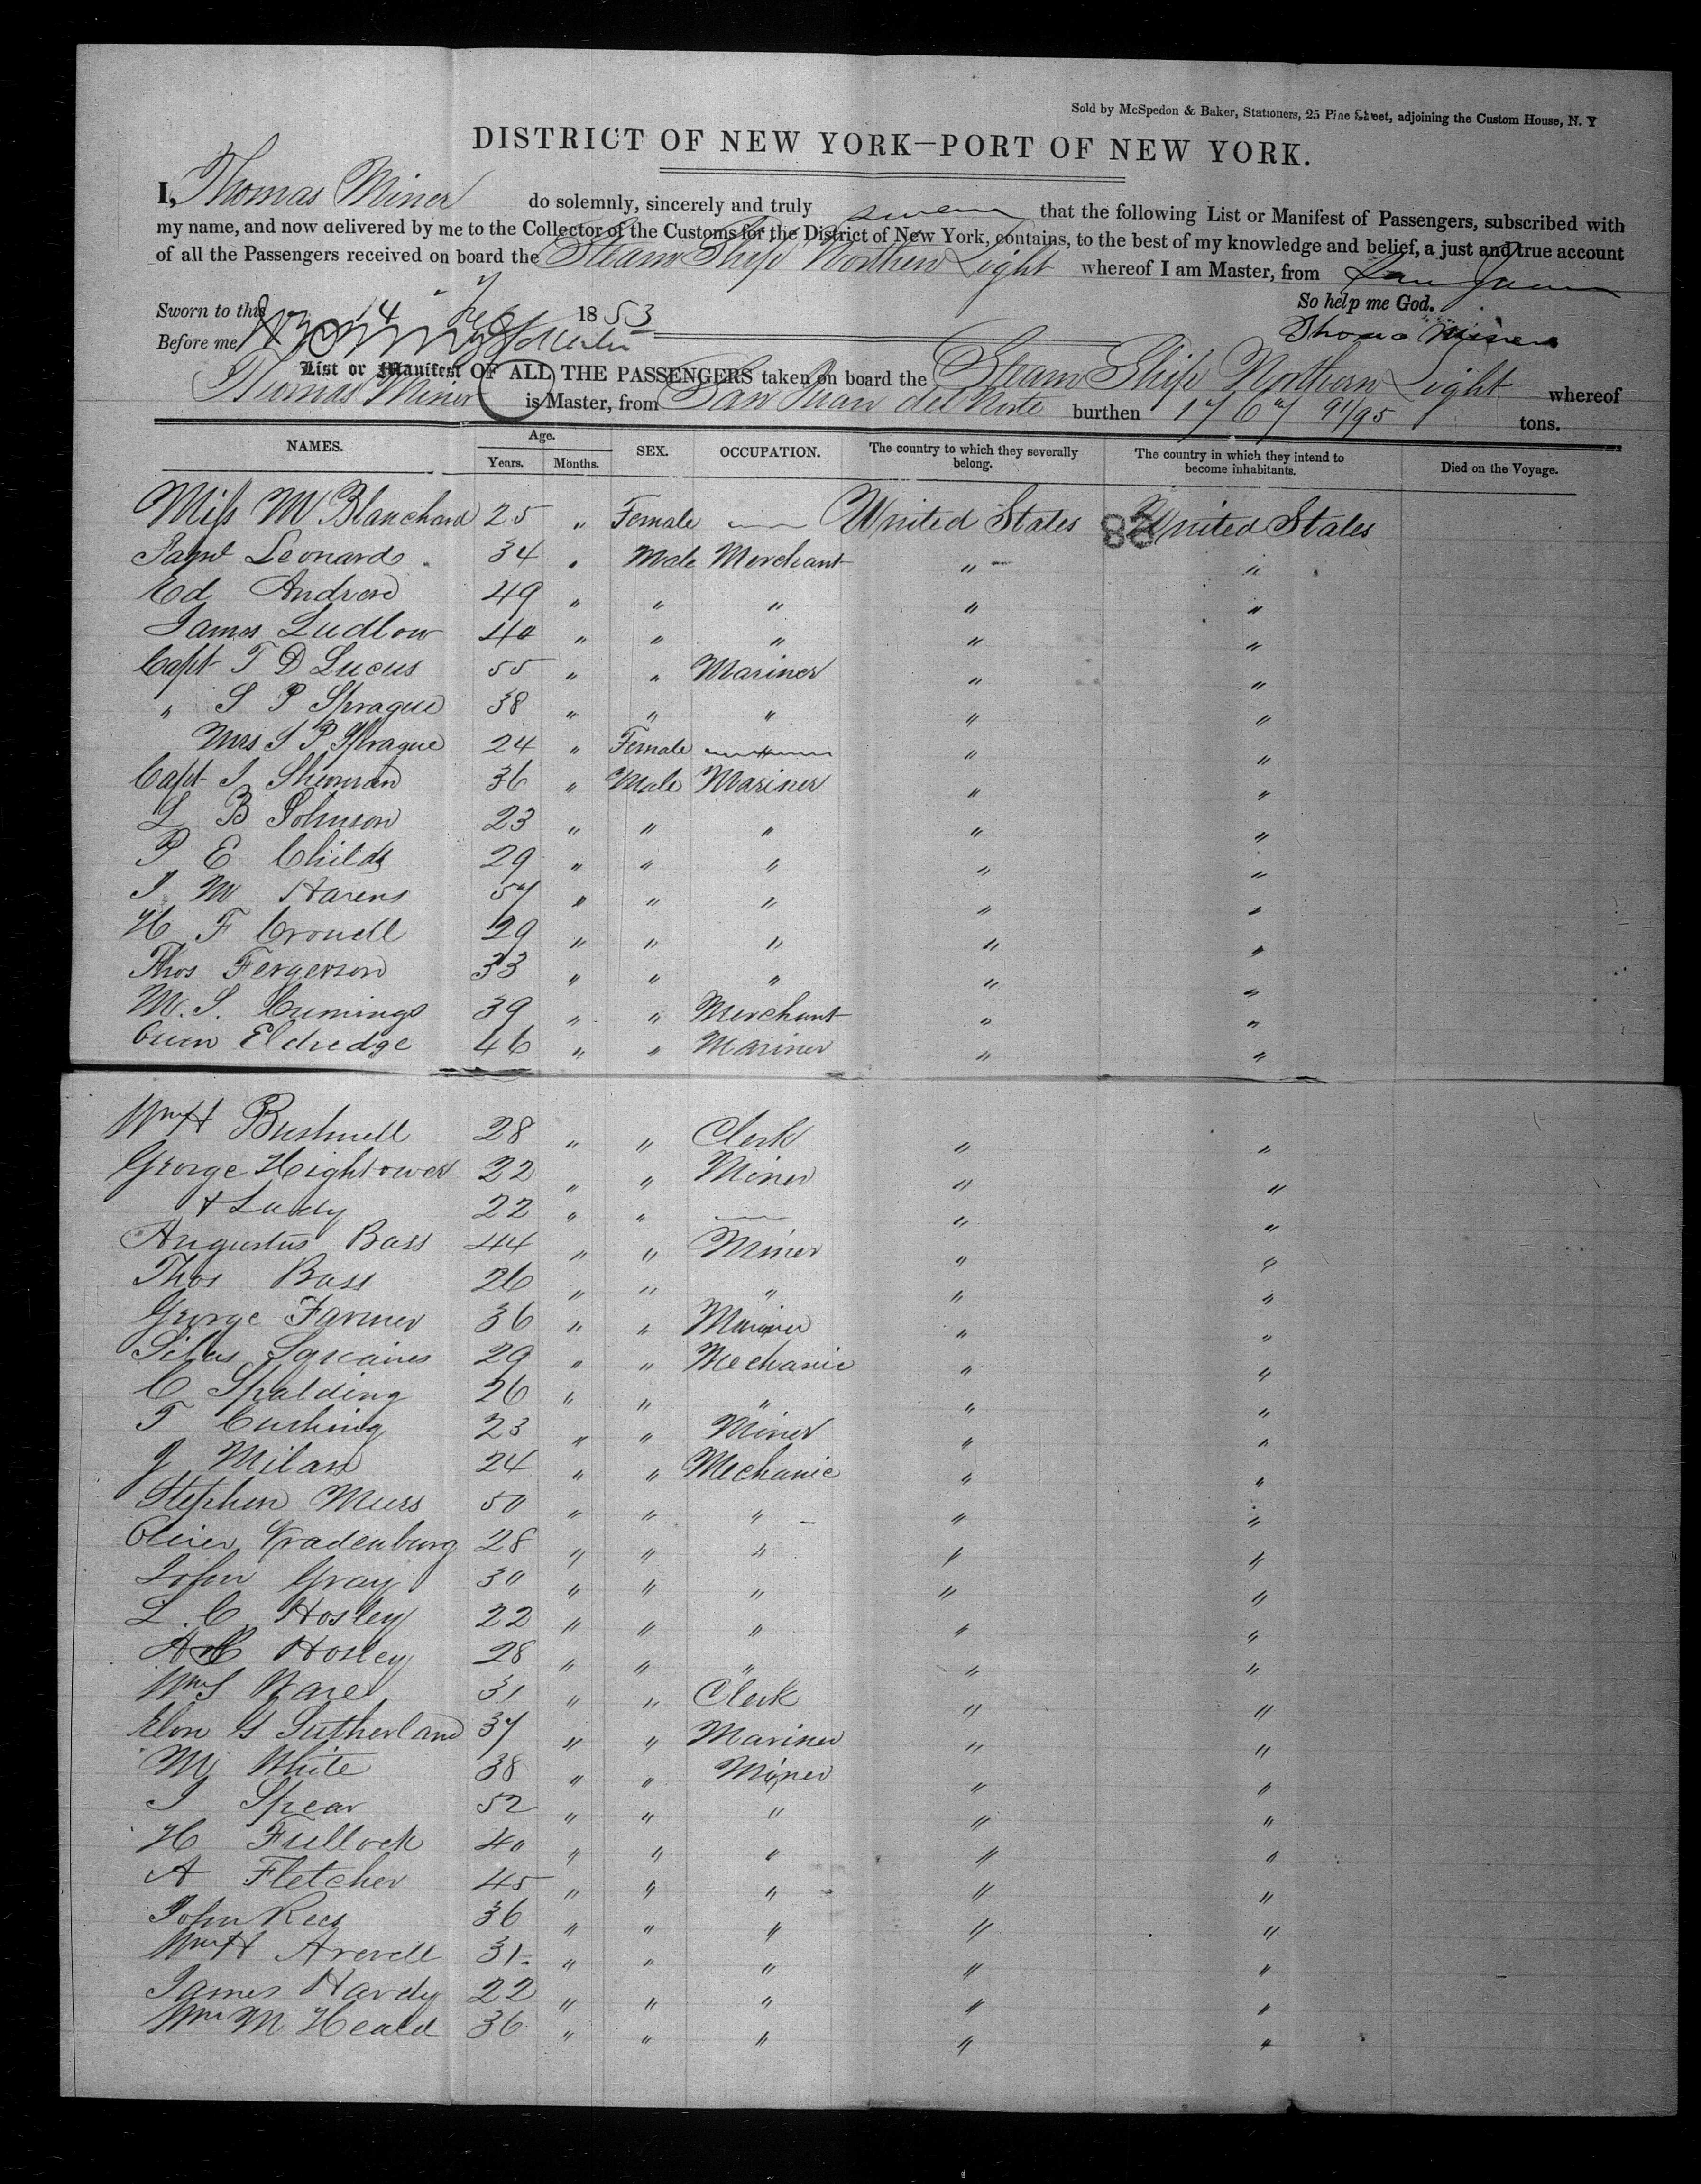 Sold by McSpedon & Baker, Stationers, 25 Pine Street, adjoining the Custom House, N. Y
DISTRICT OF NEW YORK—PORT OF NEW YORK.
I, Thomas Miner do solemnly, sincerely and truly swear that the following List or Manifest of Passengers, subscribed with
my name, and now delivered by me to the Collector of the Customs for the District of New York, contains, to the best of my knowledge and belief, a just and true account
of all the Passengers received on board the Steam Ship Northern Light whereof I am Master, from San Juan
Sworn to this 14 Feb 1853 So help me God.
Before me Thomas Miner
List or Manifest OF ALL THE PASSENGERS taken on board the Steam Ship Northern Light whereof
Thomas Miner is Master, from San Juan del Norte burthen 1767 91/95 tons.
NAMES. Age. Years. Months. SEX. OCCUPATION. The country to which they severally belong. The country in which they intend to become inhabitants. Died on the Voyage.
Miss M Blanchard 25 " Female — United States 88 United States
Saml Leonard 34 " Male Merchant " "
Ed Andrew 49 " " " " "
James Ludlow 40 " " " " "
Capt T D Lucus 55 " " Mariner " "
" S P Sprague 38 " " " " "
Mrs S P Sprague 24 " Female — " "
Capt J Sherman 36 " Male Mariner " "
L B Johnson 23 " " " " "
P E Childs 29 " " " " "
J M Harens 57 " " " " "
H F Crowell 29 " " " " "
Thos Fergerson 33 " " " " "
M. S. Cumings 39 " " Merchant " "
Eldredge 46 " " Mariner " "
Wm H Bushnell 28 " " Clerk " "
George Hightower 22 " " Miner " "
+ Lady 22 " " — " "
Augustus Bass 44 " " Miner " "
Thos Bass 26 " " " " "
George Farmer 36 " " Mariner " "
Silas 29 " " Mechanic " "
C Spalding 26 " " " " "
T Cushing 23 " " Miner " "
J Milan 24 " " Mechanic " "
Stephen Muss 50 " " " " "
Oliver Vradenburg 28 " " " " "
John Gray 30 " " " " "
L. C. Hosley 22 " " " " "
A C Hosley 28 " " " " "
Wm S Ware 31 " " Clerk " "
Elon G Sutherland 37 " " Mariner " "
M White 38 " " Miner " "
J Spear 52 " " " " "
H Fullock 40 " " " " "
A Fletcher 45 " " " " "
John Rees 36 " " " " "
Wm H Averell 31 " " " " "
James Hardy 22 " " " " "
Wm M Heald 36 " " " " "